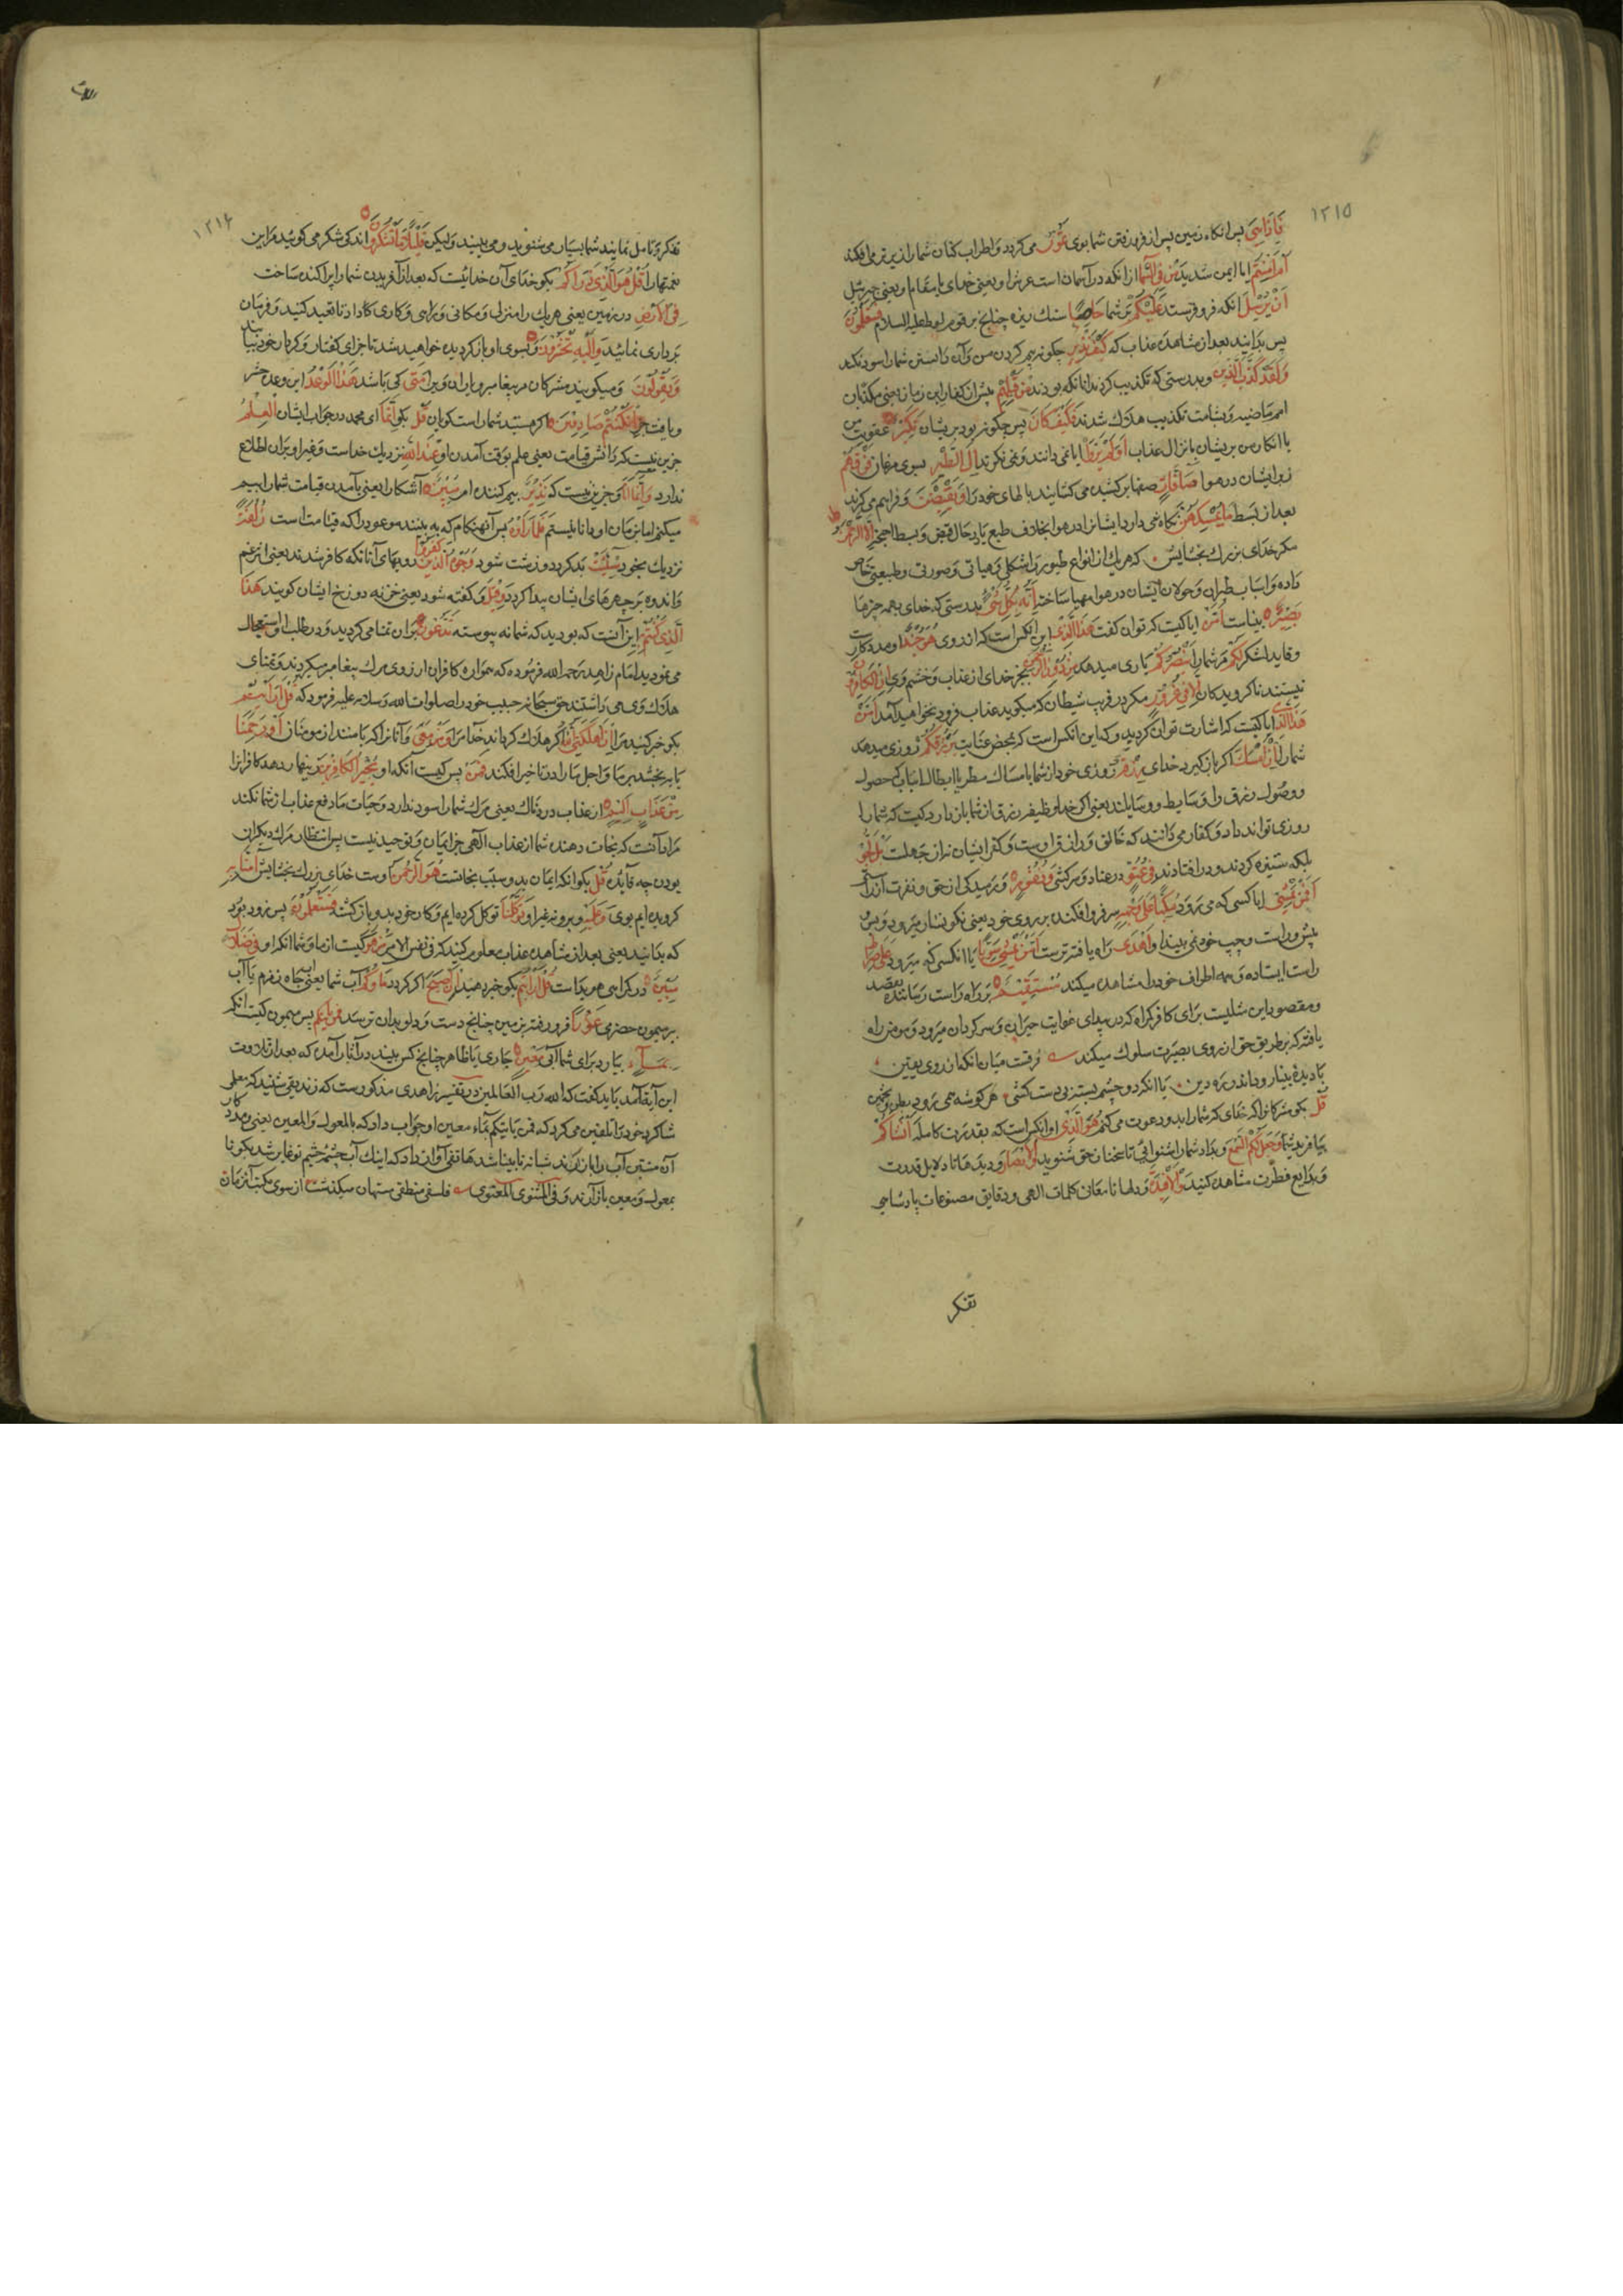 ۱۲۱۵
فَإِذَا هِيَ پس انکاه زمین پس از فرو رفتن شما بوی تَمُورُ می کردد و اطراب کنان شما را زیر تر می افکند
أَمْ أَمِنْتُمْ ایا ایمن شدید مَنْ فِي السَّمَاءِ از انکه در آسمان است عرش او یعنی خدای
أَنْ يُرْسِلَ انکه فرو فرستد عَلَيْكُمْ بر شما حَاصِبًا سنك ریزه چنانچ بر قوم لوط علیه السلام فَسَتَعْلَمُونَ
پس بدانید بعد از مشاهده عذاب که كَيْفَ نَذِيرِ چکونه بیم کردن من و آن دانستن شما را سود نکند
وَلَقَدْ كَذَّبَ الَّذِينَ و بدرستی که تکذیب کردند انانکه بودند مِنْ قَبْلِهِمْ پیش از کفار این زمان یعنی مکذبان
امم ماضیه و بشامت تکذیب هلاك شدند فَكَيْفَ كَانَ پس چکونه بود بر یشان نَكِيرِ عقوبت من
یا انکار من بریشان بانزال عذاب أَوَلَمْ يَرَوْا ایا نمی دانند و نمی نکرند إِلَى الطَّيْرِ بسوی مرغان فَوْقَهُمْ
زبر ایشان در هوا صَافَّاتٍ صفها بر کشیده می کشایند بالهای خود را وَيَقْبِضْنَ و فراهم می کیرند
بعد از بسط مَا يُمْسِكُهُنَّ نکاه نمی دارد ایشانرا در هوا بخلاف طبع با در حال قبض و بسط اجنحه إِلَّا الرَّحْمَنُ
مکر خدای بزرك بخشایش که هریك از انواع طیور را شکلی و هیاتی و صورتی و طبیعتی خاص
داده و اسباب طیران و جولان ایشان در هوا مهیا ساخته إِنَّهُ بِكُلِّ شَيْءٍ بدرستی که خدای بهمه چیزها
بَصِيرٌ بیناست أَمَّنْ ایا کیست که توان کفت هَذَا الَّذِي این انکس است که از روی هُوَ جُنْدٌ او مددکار
لَكُمْ مر شما را يَنْصُرُكُمْ یاری میدهد مِنْ دُونِ الرَّحْمَنِ بجز خدای از عذاب و خشم وی إِنِ الْكَافِرُونَ
نیستند ناکرویدکان إِلَّا فِي غُرُورٍ مکر در فریب شیطان که میکوید عذاب فرود نخواهد آمد أَمَّنْ
هَذَا الَّذِي ایا کیست که اشارت توان کردید و که این انکس است که بمحض عنایت يَرْزُقُكُمْ روزی میدهد
شما را إِنْ أَمْسَكَ اکر باز کیرد خدای رِزْقَهُ روزی خود از شما بامساك مطر یا ابطال اسباب حصول
و وصول رزق را و سایط و وسایلند یعنی اکر خدا وظیفه رزق از شما باز دارد کیست که شما را
روزی تواند داد و کفار می دانند که خالق و رازق اوست و کفر ایشان نه از جهلست بَلْ لَجُّوا
بلکه ستیزه کردند و در افتادند فِي عُتُوٍّ در عناد و سرکشی وَنُفُورٍ و رمیدکی از حق و نفرت از آن
أَفَمَنْ يَمْشِي ایا کسی که می رود مُكِبًّا عَلَى وَجْهِهِ سر فرو افکنده بر روی خود یعنی نکونسار میرود و پس
پیش و راست و چپ خود نمی بیند أَهْدَى راه یافته ترست أَمَّنْ يَمْشِي سَوِيًّا یا انکسی که میرود عَلَى صِرَاطٍ
راست ایستاده و همه اطراف خود را مشاهده میکند مُسْتَقِيمٍ بر راه راست رساننده بمقصد
و مقصود این مثلیست برای کافر کمراه که در بیدای غوایت حیران و سرکردان میرود و مومن راه
یافته که بر طریق حق از روی بصیرت سلوك میکند فرقست میان انکه از روی یقین
با دیده بینا رود اندر ره دین یا انکه دو چشم بسته بی دست کشی هر کوشه همی رود بظن و تخمین
قُلْ بکو مشرکانرا که خدای که شما را بدو دعوت می کنم هُوَ الَّذِي او انکس است که بقدرت کامله أَنْشَأَكُمْ
بیافرید شما را وَجَعَلَ لَكُمُ السَّمْعَ و بداد شما را شنوائی تا سخنان حق شنوید وَالْأَبْصَارَ و دیدها تا دلایل قدرت
و بدایع فطرت مشاهده کنید وَالْأَفْئِدَةَ و دلها تا معانی کلمات الهی و دقایق مصنوعات پادشاهی
تفکر
۱۲۱۶
تفکر و تامل نمایند شما بسیار می شنوید و می بینید ولیکن قَلِيلًا مَا تَشْكُرُونَ اندکی شکر می کوئید مر این
نعمتها را قُلْ هُوَ الَّذِي ذَرَأَكُمْ بکو خدای آن خدائیست که بعد از آفریدن شما را پراکنده ساخت
فِي الْأَرْضِ در زمین یعنی هریك را منزلی و مکانی و راهی و کاری داد تا تعبد کنید و فرمان
برداری نمائید وَإِلَيْهِ تُحْشَرُونَ و بسوی او باز کردیده خواهید شد تا جزای کفتار و کردار خود بیابید
وَيَقُولُونَ و میکویند مشرکان مر پیغامبر و یاران ویرا مَتَى کی باشد هَذَا الْوَعْدُ این وعده حشر
إِنْ كُنْتُمْ صَادِقِينَ اکر هستید شما راست کویان قُلْ بکو إِنَّمَا ای محمد در جواب ایشان الْعِلْمُ
جزین نیست که دانش قیامت یعنی علم بوقت آمدن او عِنْدَ اللَّهِ نزدیك خداست و غیر او بران اطلاع
ندارد وَإِنَّمَا أَنَا و جزین نیست که نَذِيرٌ بیم کننده ام مُبِينٌ آشکارا یعنی بآمدن قیامت شما را بیم
میکنم اما زمان او دانا نیستم فَلَمَّا رَأَوْهُ پس آنهنکام که به بینند موعود را که قیامت است زُلْفَةً
نزدیك بخود سِيئَتْ بد کردد و زشت شود وُجُوهُ الَّذِينَ كَفَرُوا رویهای آنانکه کافر شدند یعنی اثر غم
و اندوه بر چهرهای ایشان پیدا کردد وَقِيلَ و کفته شود یعنی خزنه دوزخ ایشان کویند هَذَا
الَّذِي كُنْتُمْ این آنست که بودید که شما بِهِ پیوسته تَدَّعُونَ بران تمنا می کردید و در طلب او استعجال
می نمودید امام زاهد رحمه الله فرموده که همواره کافران ارزوی مرك پیغامبر میکردند و تمنای
هلاك وی می داشتند حق سبحانه حبیب خود را صلوات الله و سلامه علیه فرمود که قُلْ أَرَأَيْتُمْ
بکو خبر کنید مرا إِنْ أَهْلَكَنِيَ اللَّهُ اکر هلاك کرداند خدا مرا وَمَنْ مَعِيَ و آنانرا که با منند از مومنان أَوْ رَحِمَنَا
یا ببخشد بر ما و اجل ما را در تاخیر افکند فَمَنْ پس کیست آنکه او يُجِيرُ الْكَافِرِينَ زینهار دهد کافرانرا
مِنْ عَذَابٍ أَلِيمٍ از عذاب دردناك یعنی مرك ما شما را سود ندارد و حیات ما دفع عذاب از شما نکند
مراد آنست که نجات دهنده شما از عذاب الهی جز ایمان و توحید نیست پس انتظار مرك دیکران
بودن چه فایده قُلْ بکو انکه ایمان بدو سبب نجاتست هُوَ الرَّحْمَنُ اوست خدای بزرك بخشایش آمَنَّا بِهِ
کرویده ایم بوی وَعَلَيْهِ و برو نه غیر او تَوَكَّلْنَا توکل کرده ایم و کار خود بدو باز کشته فَسَتَعْلَمُونَ پس زود بود
که بدانید یعنی بعد از مشاهده عذاب معلوم کنید که فی نفس الامر مَنْ هُوَ کیست از ما و شما انکه او فِي ضَلَالٍ
مُبِينٍ در کمراهی هویداست قُلْ أَرَأَيْتُمْ بکو خبر دهید إِنْ أَصْبَحَ اکر کردد مَاؤُكُمْ آب شما یعنی چاه زمزم یا آب
بیر میمون حضرمی غَوْرًا فرو رفته بزمین چنانچ دست و دلو بدان نرسد فَمَنْ يَأْتِيكُمْ پس کیست انکه
بِمَاءٍ بیارد برای شما آبی مَعِينٍ جاری یا ظاهر چنانچ کس بیند در آثار آمده که بعد از تلاوت
این آیه باید کفت که الله رب العالمین در تفسیر زاهدی مذکورست که زندیقی شنید که معلمی
شاکرد خود را تلقین می کرد که فمن یاتیکم بماء معین او جواب داد که بالمعول و المعین یعنی
آن شب نابینا شد هاتفی آواز داد که اینك آب چشمه چشم تو غایر شد بکو تا
بمعول و معین باز آرند و فی المثنوی المعنوی فلسفی منطقی مستهان میکذشت از سوی مکتب آنزمان